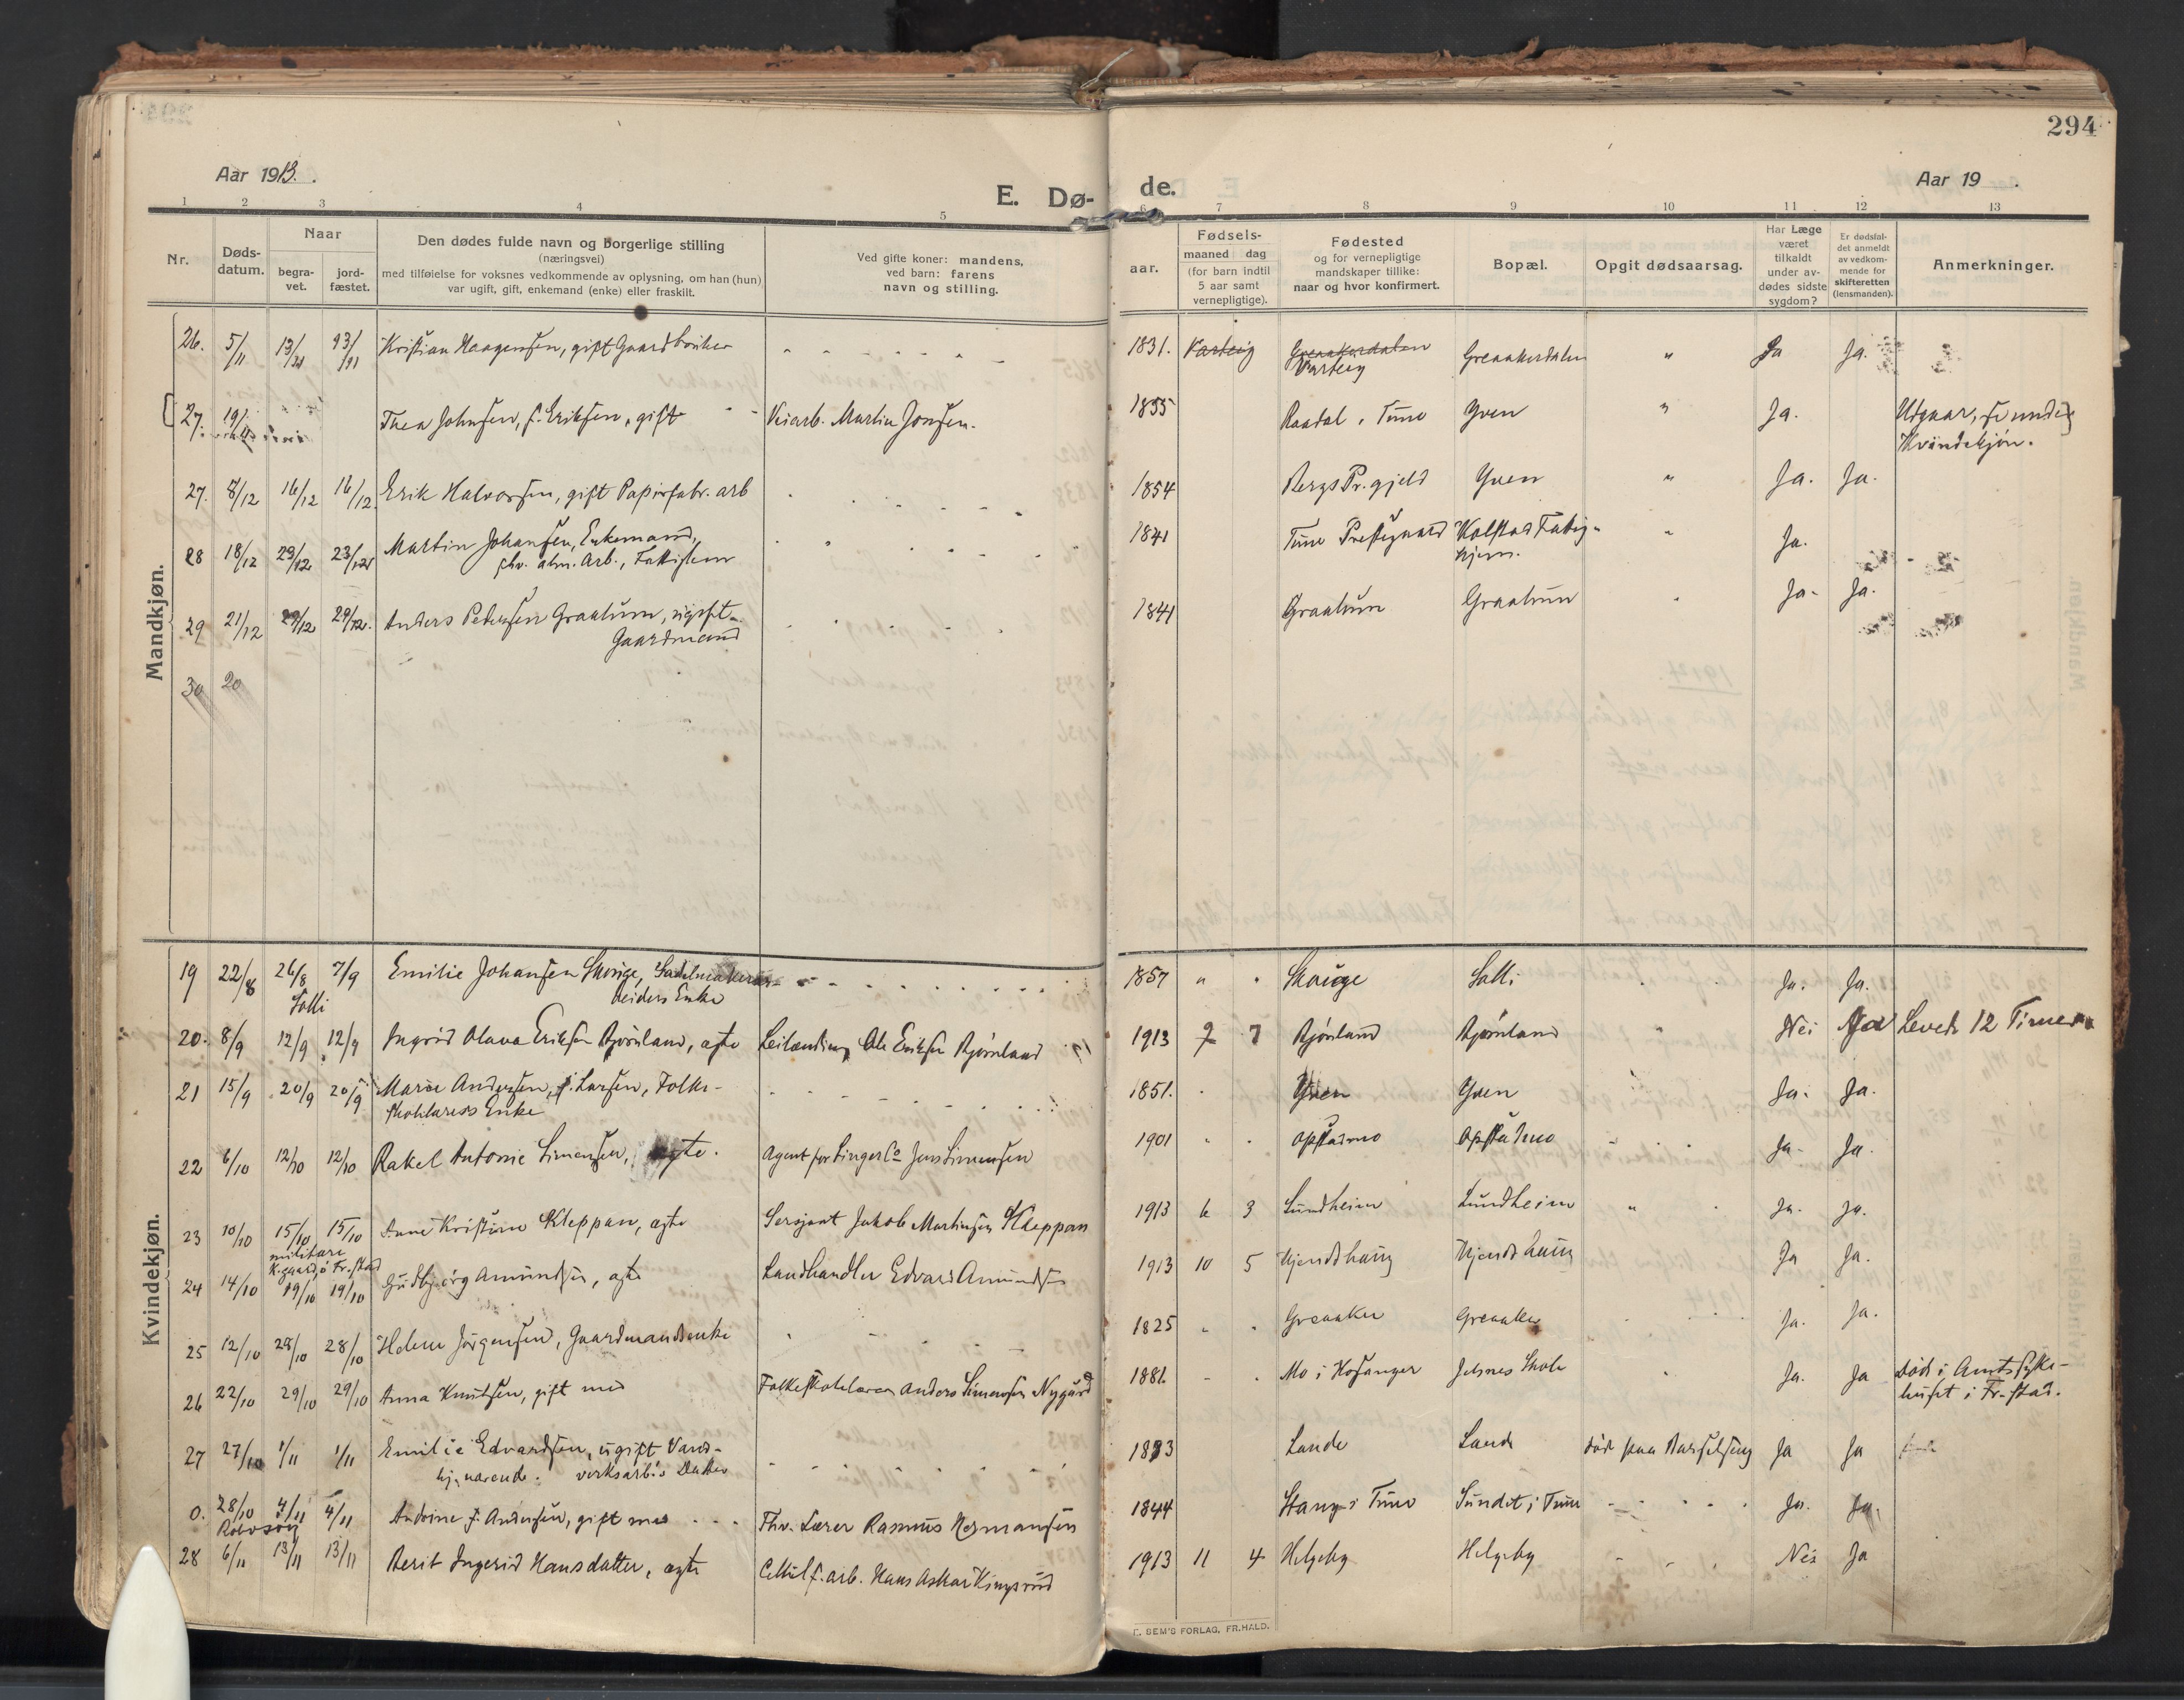 294
Aar 1913.
E. Dø-
de.
Aar 19 .
1 2 3 4 5 6 7 8 9 10 11 12 13
Nr.
Døds-
datum.
Naar
begra-
vet.
jord-
fæstet.
Den dødes fulde navn og borgerlige stilling
(næringsvei)
med tilføielse for voksnes vedkommende av oplysning, om han (hun)
var ugift, gift, enkemand (enke) eller fraskilt.
Ved gifte koner: mandens,
ved barn: farens
navn og stilling.
aar.
Fødsels-
maaned dag
(for barn indtil
5 aar samt
vernepligtige).
Fødested
og for vernepligtige
mandskaper tillike:
naar og hvor konfirmert.
Bopæl.
Opgit dødsaarsag.
Har Læge
været
tilkaldt
under av-
dødes sidste
sygdom?
Er dødsfal-
det anmeldt
av vedkom-
mende for
skifteretten
(lensmanden).
Anmerkninger.
Mandkjøn.
26. 5/11 13/11 13/11 Kristian Haagensen, gift Gaardbruker 1831. Varteig Greaakerdalen Greaakerdalen " Ja Ja.
Varteig
27. 19/11 Thea Johnsen, f. Eriksen, gift Veiarb. Martin Jonsen. 1855 Raadal i Tune Yven " Ja. Utgaar, se under
Kvindekjøn.
27. 8/12 16/12 16/12 Erik Halvorsen, gift Papirfabr. arb 1854 Bergs Pr.gjeld Yven " Ja. Ja.
28 18/12 23/12 23/12 Martin Johansen, Enkemand, 1841 Tune Prestegaard Kolstad Fattig- " Ja.
fhv. alm. Arb., Fattiglem hjem.
29 21/12 29/12 29/12. Anders Pedersen Graalum, ugift 1841 Graalum Graalum Ja. Ja.
Gaardmand
30 20
Kvindekjøn.
19 22/8 26/8 7/9 Emilie Johansen Skouge, Sadelmakerar- 1857 " Skouge Solli Ja. Ja.
Solli beiders Enke
20. 8/9 12/9 12/9 Ingrid Olava Eriksen Bjørnland, ægte Leilænding Ole Eriksen Bjørnland 1913 9 7 Bjørnland Bjørnland " Nei Ja Levede 12 Timer
21 15/9 20/9 20/9 Marie Andersen, f. Larsen, Folke- 1851. Yven Yven Ja. Ja.
skolelærers Enke
22 6/10 12/10 12/10 Rakel Antonie Simensen, ægte. Agent for Singer Co Jens Simensen 1901 Opstadmo Opstadmo Ja. Ja.
23 10/10 15/10 15/10 Anne Kristine Kleppan, ægte Sersjant Jakob Martinsen Kleppan 1913 6 3 Lundheim Lundheim " Ja. Ja.
militære
K.gaard, Fr.stad
24 14/10 19/10 19/10 Gudbjørg Amundsen, ægte Landhandler Edvard Amundsen 1913 10 5 Hjendshaug Hjendshaug Ja Ja.
25 12/10 28/10 28/10 Helene Jørgensen, Gaardmandsenke 1825 Greaaker Greaaker Ja. Ja.
26 22/10 29/10 29/10 Anna Knutsen, gift med Folkeskolelærer Anders Simensen Nygård 1881. Mo i Hosanger Jelsnes Skole Ja. Ja Død i Amtssyke-
huset i Fr.stad.
27 27/10 1/11 1/11 Emilie Edvardsen, ugift Vand- 1883 Lande Lande død paa Barselseng Ja Ja
hj.værende. verksarb.s Datter
0. 28/10 4/11 4/11 Andrine f. Andersen, gift med Fhv. Lærer Rasmus Hermansen 1844 Stang i Tune Sundet i Tune Ja. Ja.
Rolvsøy
28 6/11 13/11 13/11 Berit Ingerid Hansdatter, ægte Cellul.f. arb. Hans Askar Kingsrud 1913 11 4 Helgeby Helgeby Nei Ja
E. SEM'S FORLAG, FR.HALD.